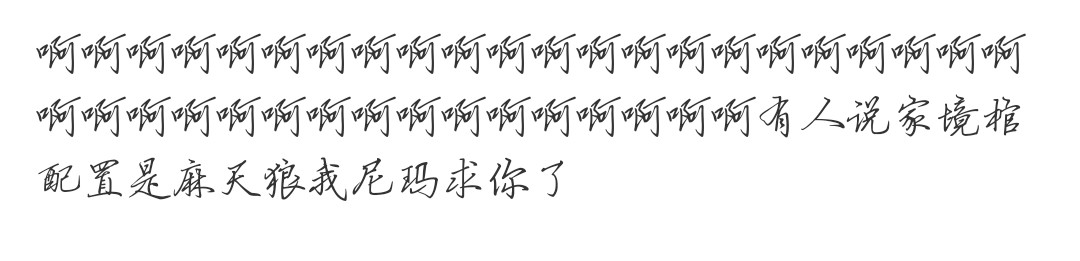 啊啊啊啊啊啊啊啊啊啊啊啊啊啊啊啊啊啊啊啊啊啊
啊啊啊啊啊啊啊啊啊啊啊啊啊啊啊啊有人说家境棺
配置是麻天狼我尼玛求你了